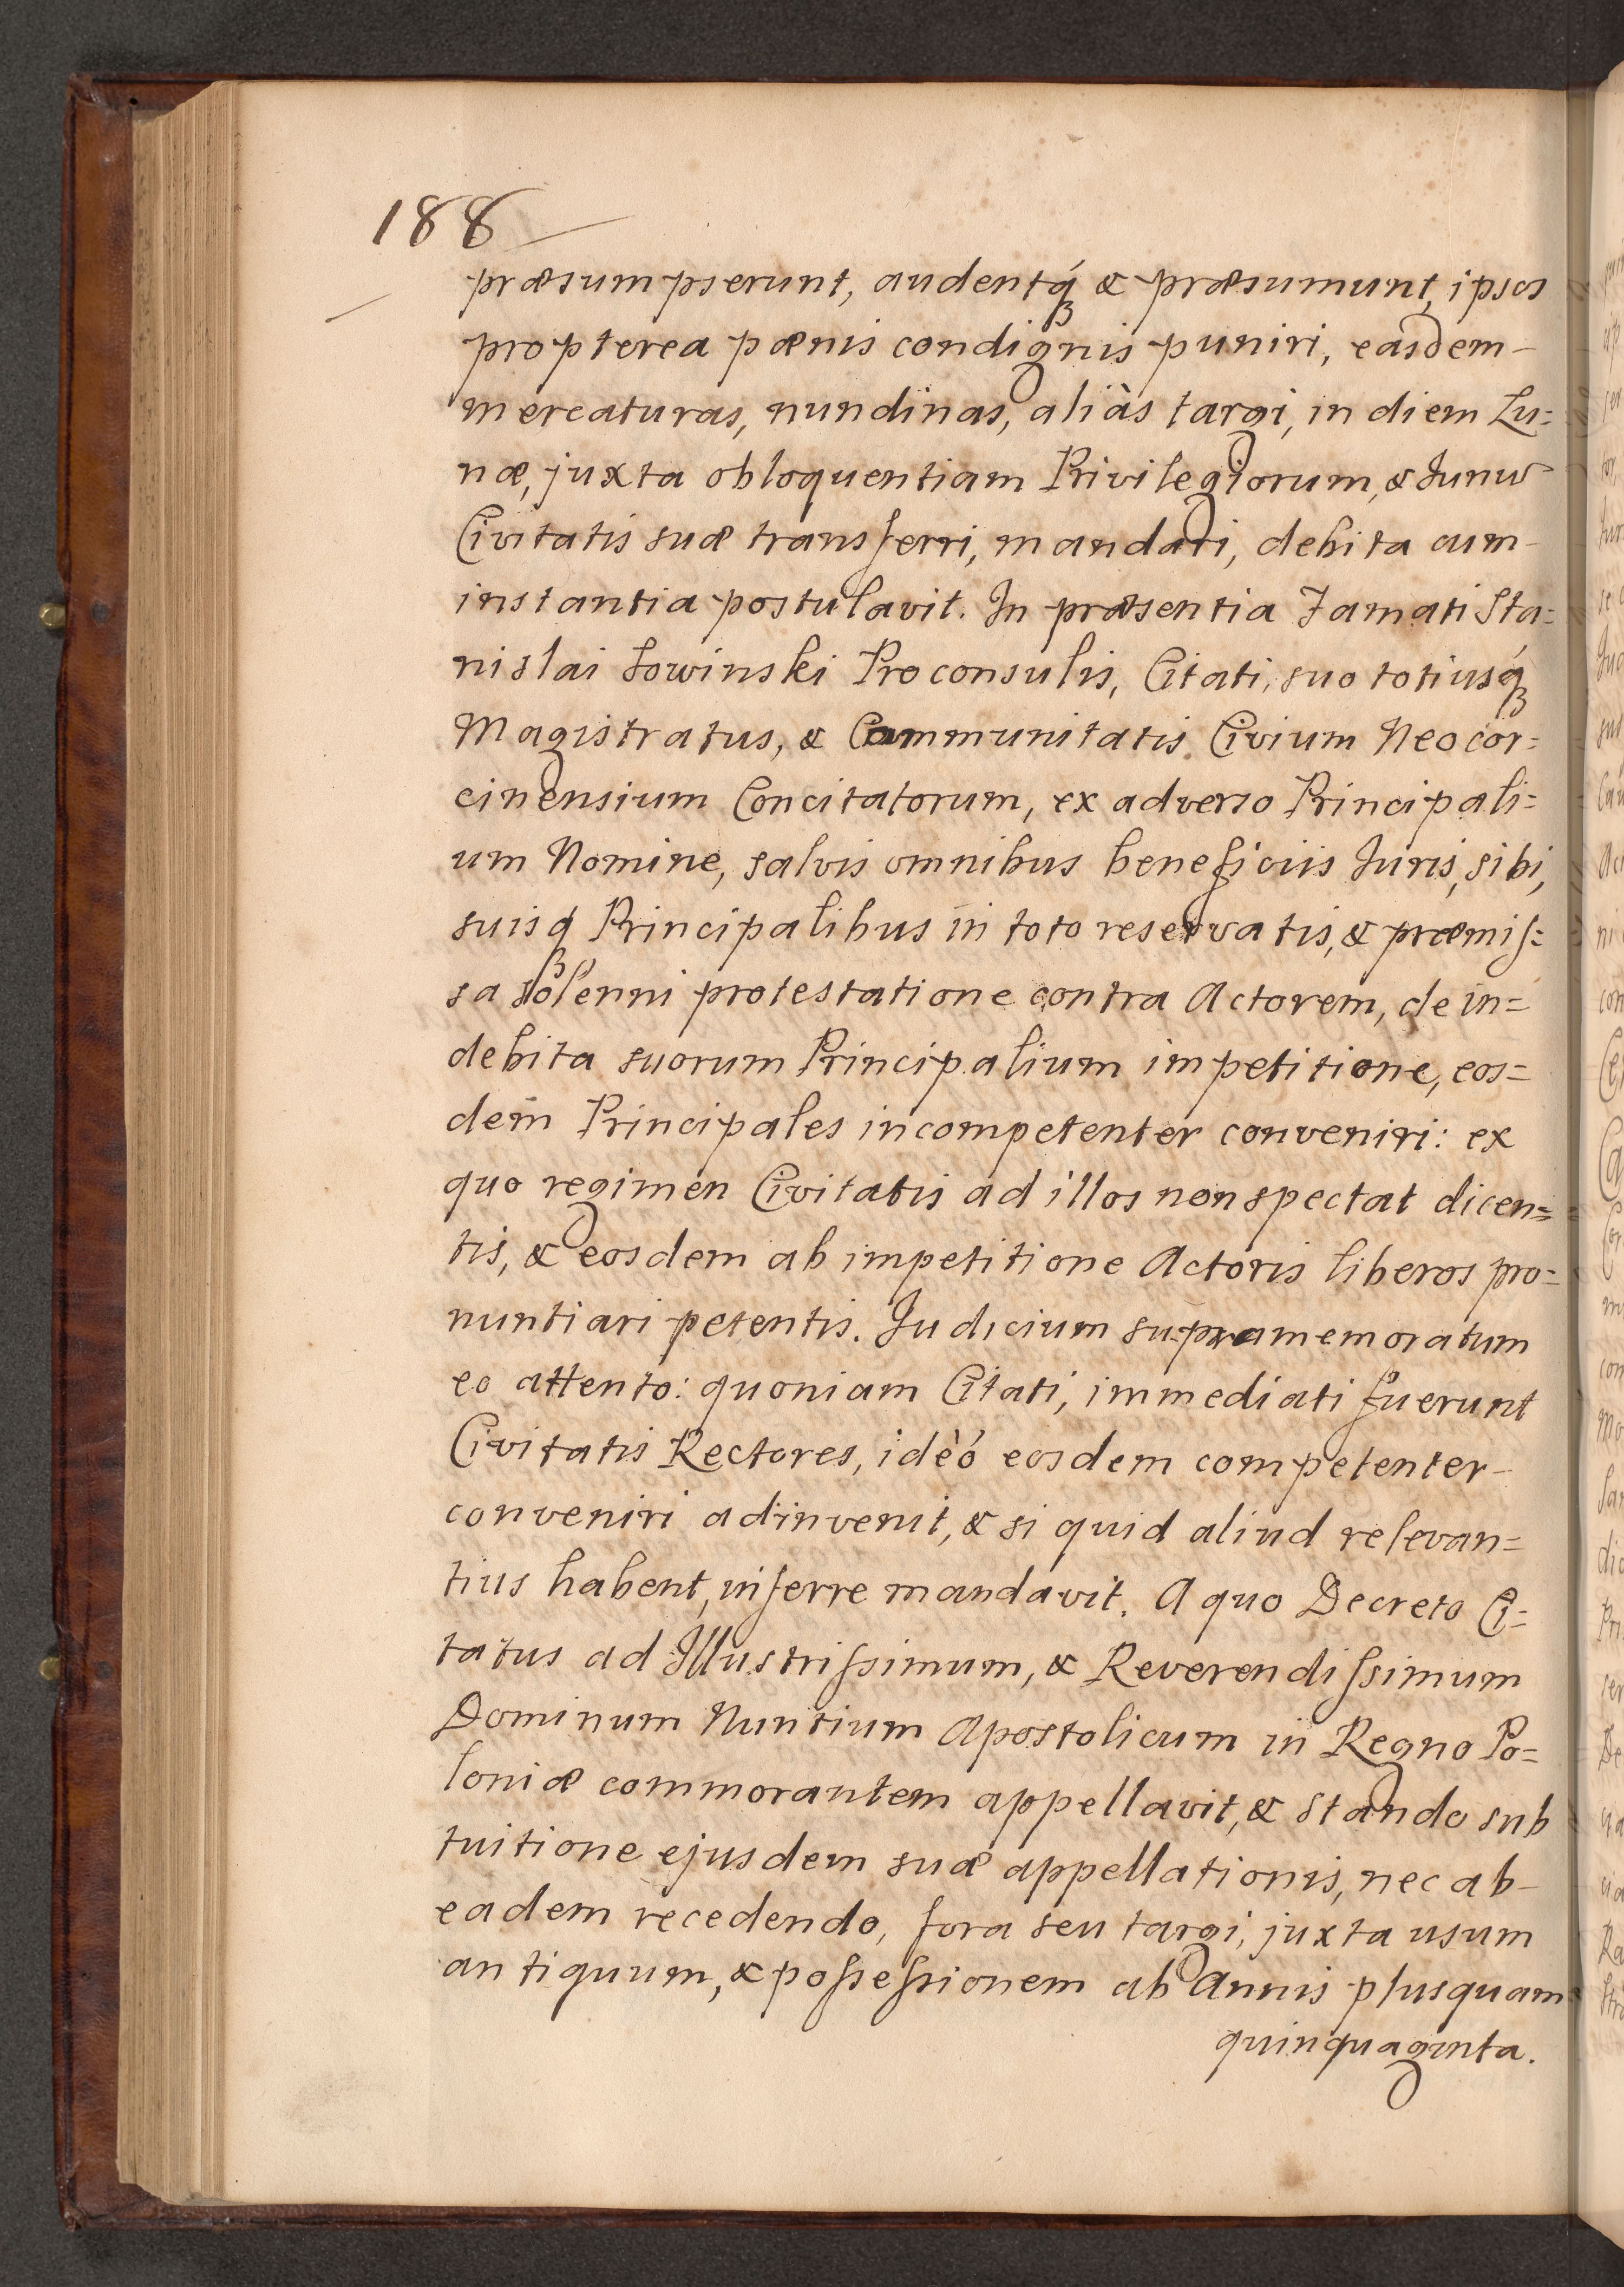 188
præsumpserunt, audentq́ꝫ & præsumunt, ipsos
propterea pœnis condignis puniri, easdem
mercaturas, nundinas, aliàs targi, in diem Lu=
næ, juxta obloquentiam Privilegiorum, &
Civitatis suæ transferri, mandari, debita cum
instantia postulavit. In præsentia Famati Sta=
nislai Łowinski Proconsulis, Citati, suo totiusq́ꝫ
Magistratus, & Communitatis Civium Neocor=
cinensium Concitatorum, ex adverso Principali=
um Nomine, salvis omnibus beneficiis Juris, sibi,
suisqꝫ Principalibus in toto reservatis, & præmiſ=
sa solenni protestatione contra Actorem, de in=
debita suorum Principalium impetitione, eos=
dem Principales incompetenter conveniri: ex
quo regimen Civitatis ad illos non spectat dicen=
tis, & eosdem ab impetitione Actoris liberos pro=
nuntiari petentis. Judicium supramemoratum
eo attento: quoniam Citati, immediati fuerunt
Civitatis Rectores, idèó eosdem competenter
conveniri adinvenit, & si quid aliud relevan=
tius habent, inferre mandavit. A quo Decreto Ci=
tatus ad Illustriſsimum, & Reverendiſsimum
Dominum Nuntium Apostolicum in Regno Po=
loniæ commorantem appellavit, & stando sub
tuitione ejusdem suæ appellationis, nec ab
eadem recedendo, fora seu targi, juxta usum
antiquum, & poſseſsionem ab Annis plusquam
quinquaginta.